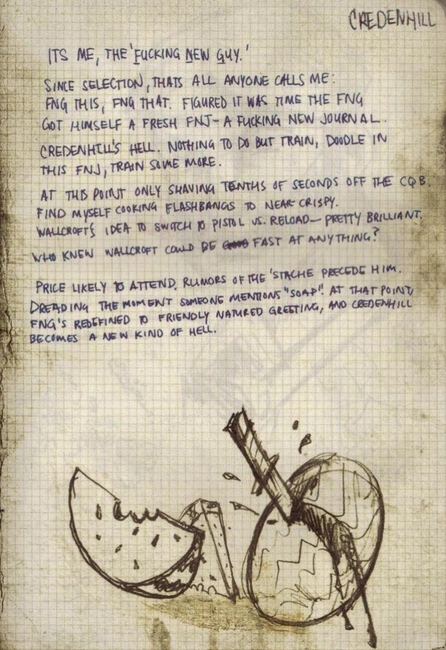 CREDENHILL
ITS ME, THE 'FUCKING NEW GUY.'
SINCE SELECTION, THATS ALL ANYONE CALLS ME:
FNG THIS, FNG THAT. FIGURED IT WAS TIME THE FNG
GOT HIMSELF A FRESH FNJ - A FUCKING NEW JOURNAL.
CREDENHILL'S HELL. NOTHING TO DO BUT TRAIN, DOODLE IN
THIS FNJ, TRAIN SOME MORE.
AT THIS POINT ONLY SHAVING TENTHS OF SECONDS OFF THE CQB.
FIND MYSELF COOKING FLASHBANGS TO NEAR CRISPY.
WALLCROFT'S IDEA TO SWITCH TO PISTOL VS. RELOAD - PRETTY BRILLIANT.
WHO KNEW WALLCROFT COULD BE FAST AT ANYTHING?
PRICE LIKELY TO ATTEND. RUMORS OF THE 'STACHE PRECEDE HIM.
DREADING THE MOMENT SOMEONE MENTIONS "SOAP". AT THAT POINT,
FNG'S REDEFINED TO FRIENDLY NATURED GREETING, AND CREDENHILL
BECOMES A NEW KIND OF HELL.